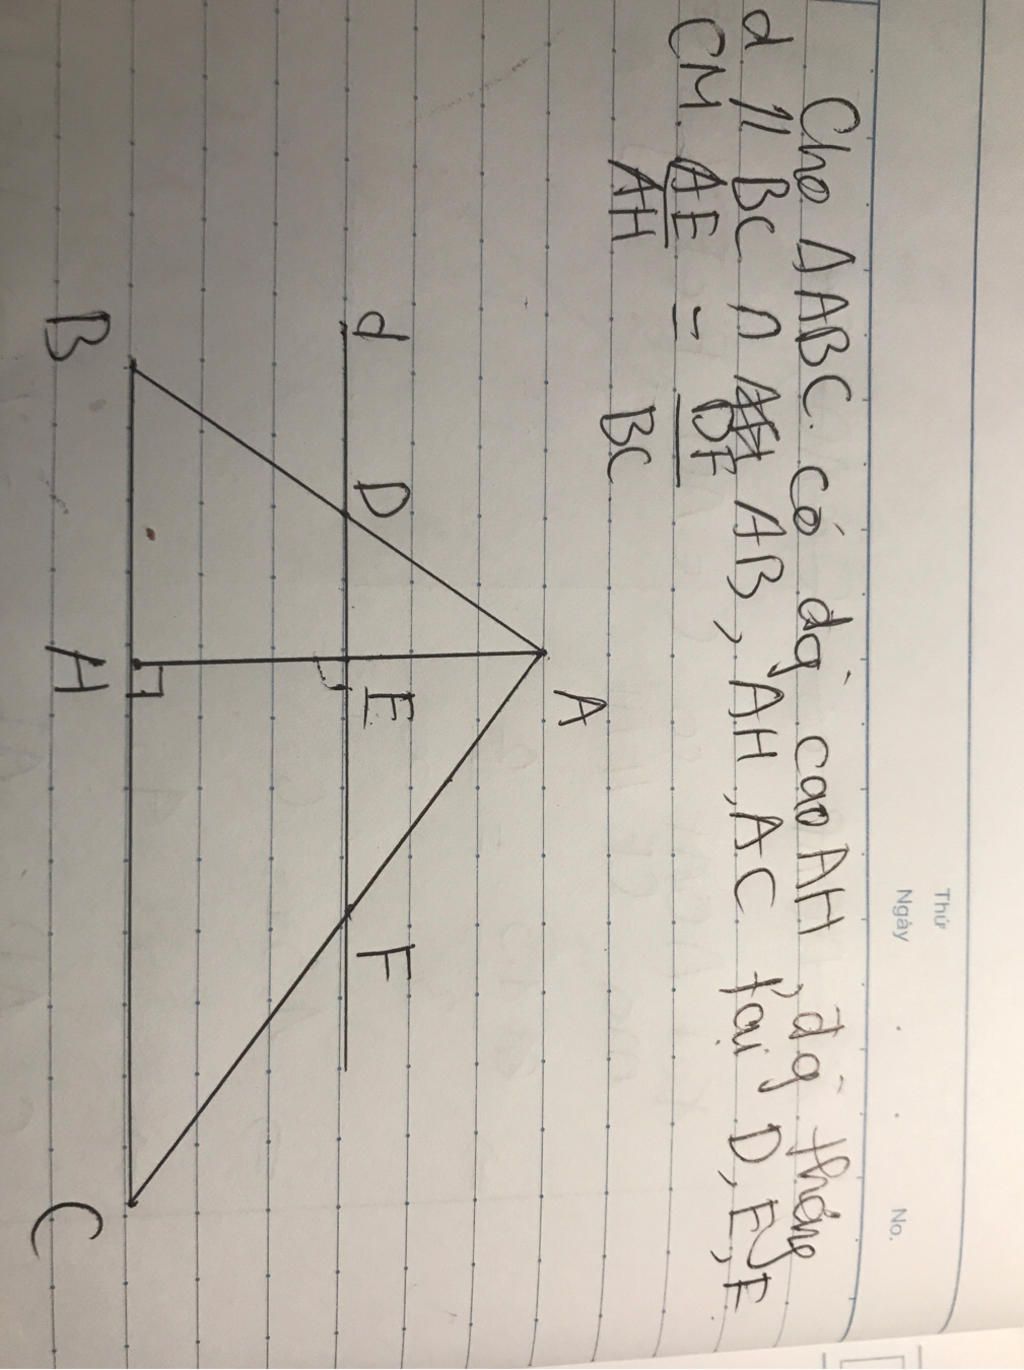 Thứ
Ngày . . No.
Cho Δ ABC. có đg̀ cao AH, đg̀ thẳng
d // BC ∩ AB, AH, AC tại D, E, F
CM. AE = DF
AH BC
A
d D E F
B H C